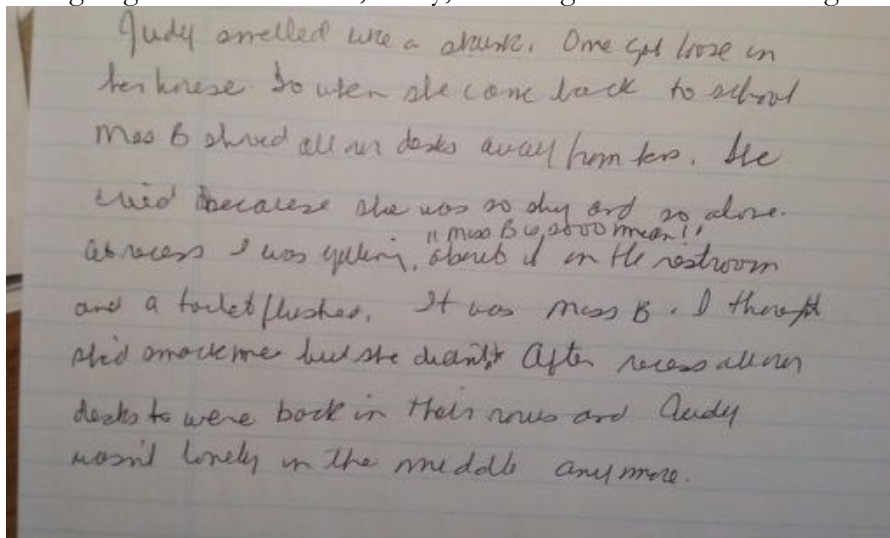 Judy smelled like a skunk. One got loose in
her house so when she came back to school
Miss B shved all our desks away from hers. She
cried because she was so shy and so alone.
"Miss B is soooo mean!"
At recess I was yelling, about it in the restroom
and a toilet flushed. It was Miss B. I thought
she'd smack me but she didn't. After recess all our
desks to were back in their rows and Judy
wasn't lonely in the middle anymore.